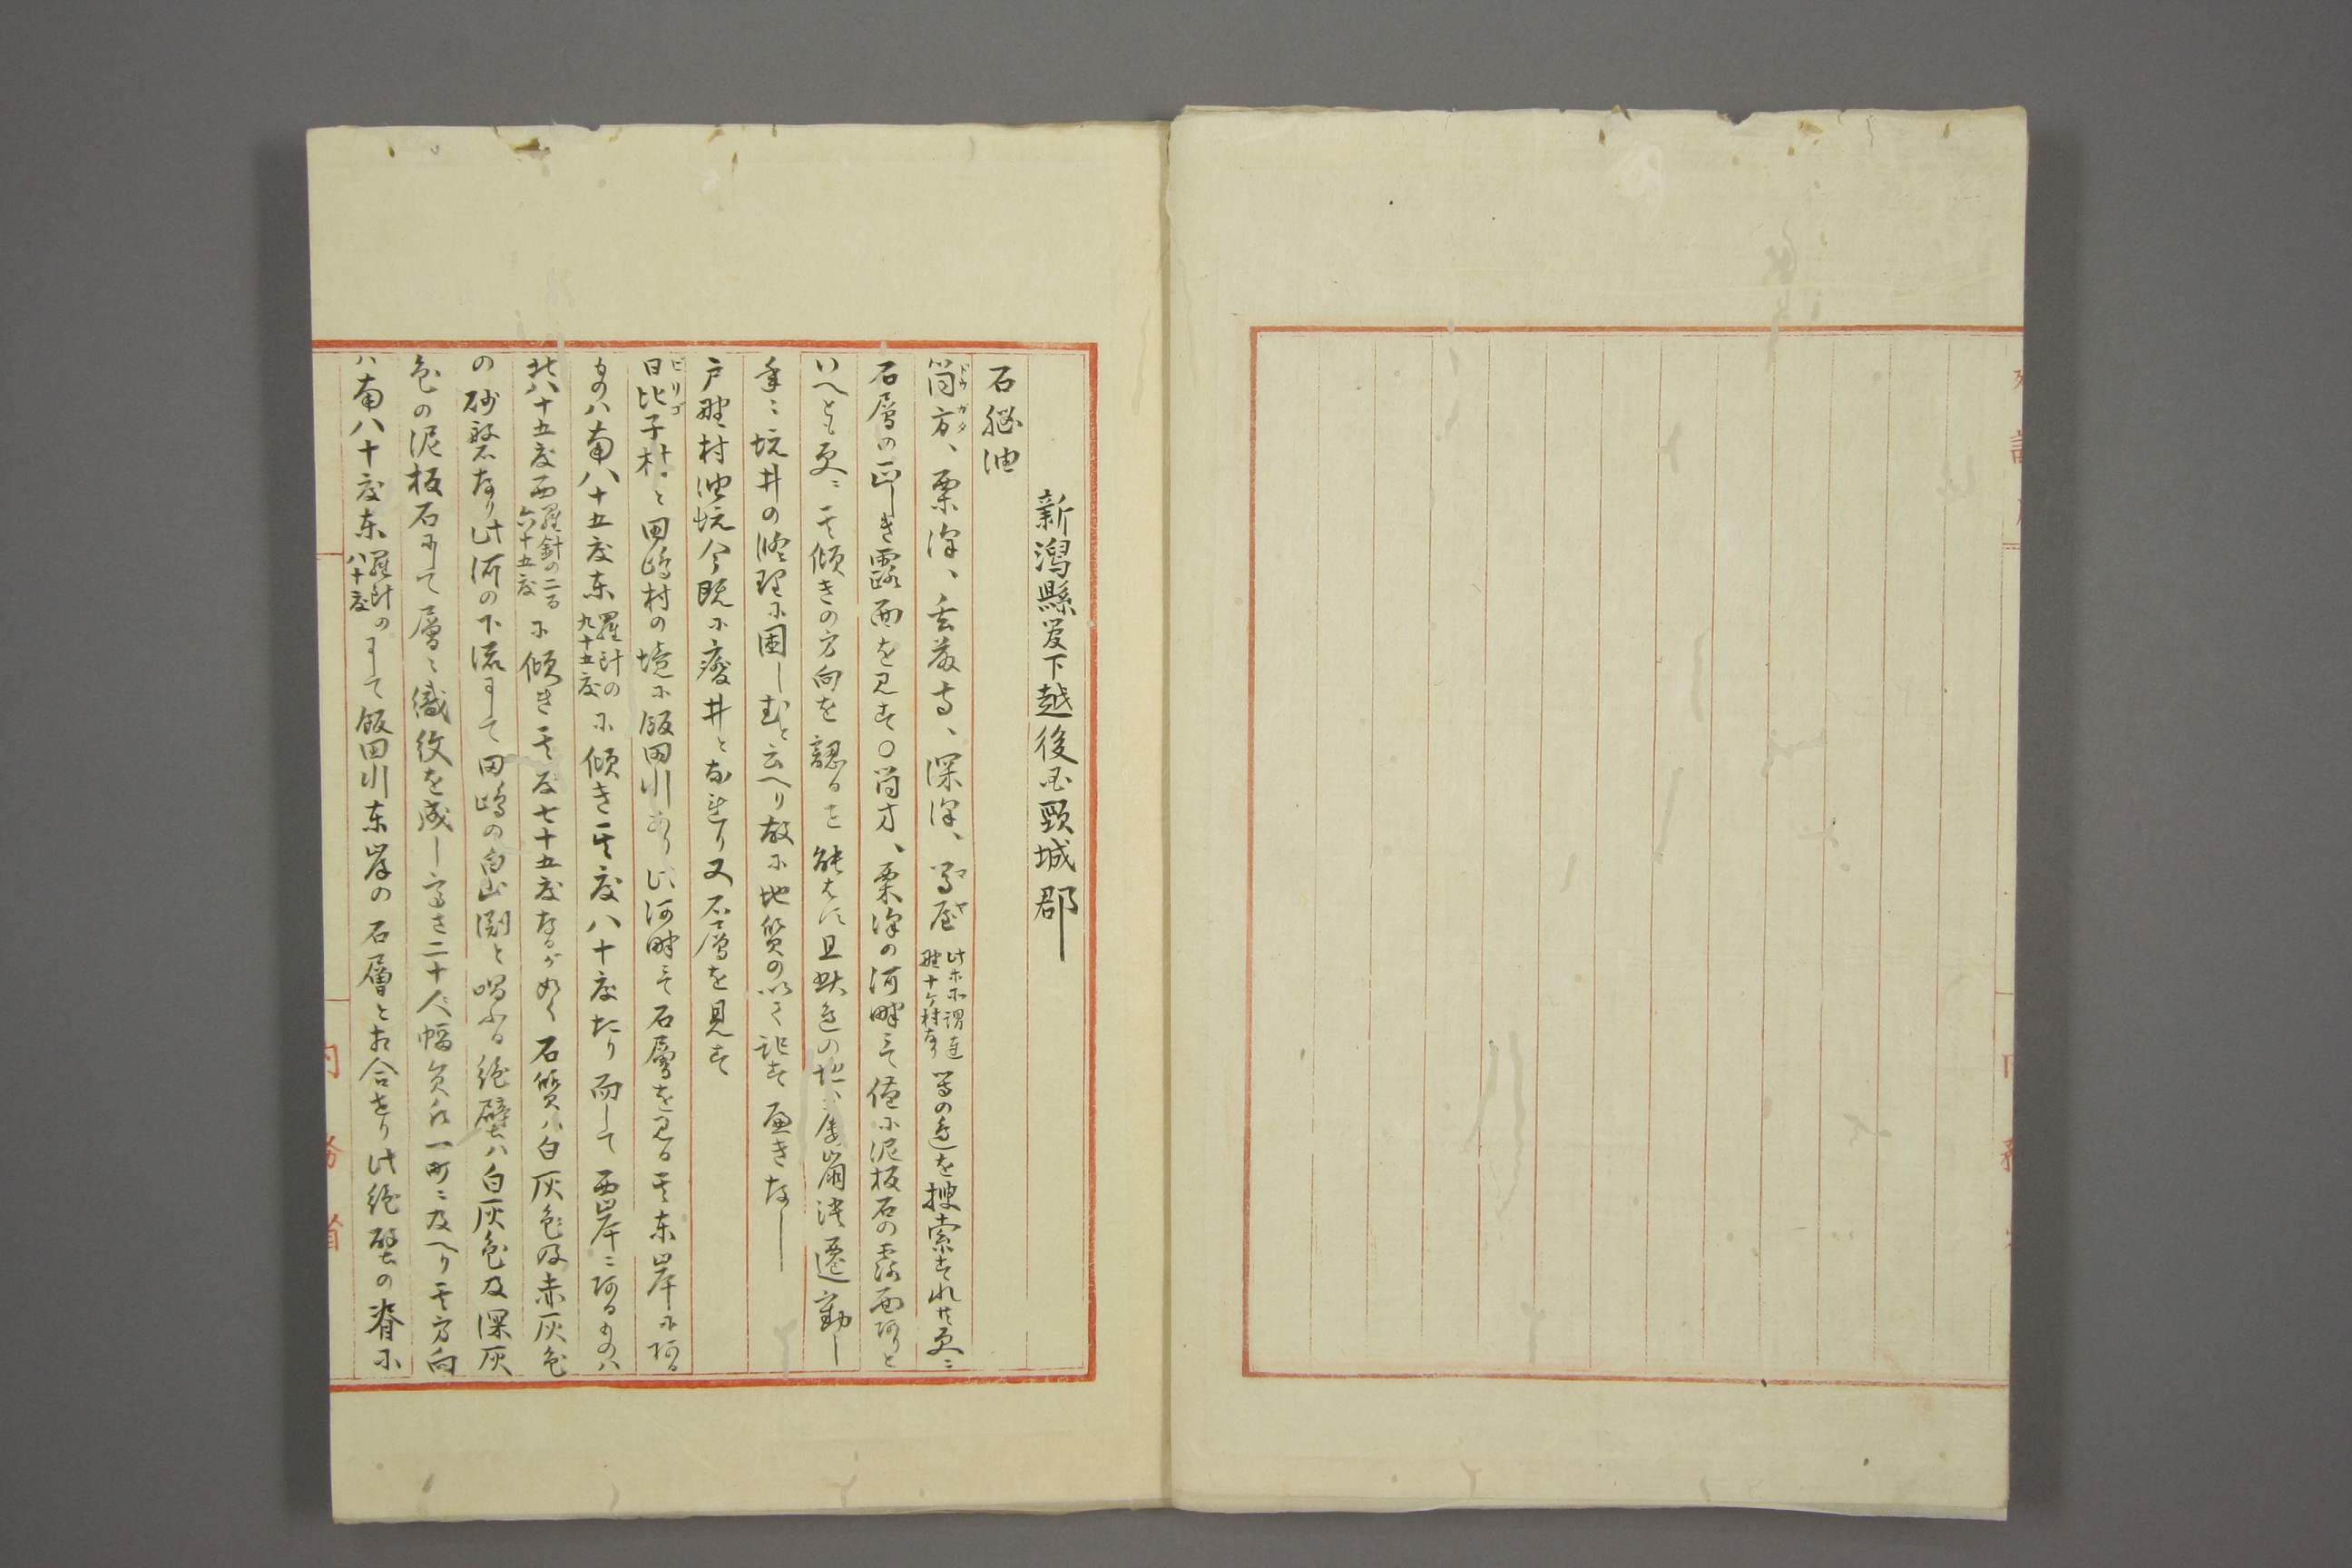 新潟縣管下越後國頸城郡
石腦油
筒方、栗澤、玄藤寺、深澤、高屋 此ホ所謂達野十ケ村なり 等の邊を搜索すれ共更ニ
石層の正しき露面を見す〇筒方、栗澤の河畔ニて僅に泥板石の露面ありと
いへとも更ニ其傾きの方向を認るを能はす且此邊の地ハ屡崩潰遷動し
年々坑井の修理に困しむと云へり故に地質の以て記す可きなし
戸野村油坑今既に廢井となれり又石層を見す
日比子村と田嶋村の境に飯田川あり此河畔ニて石層を見る其東岸に在る
ものハ南八十五度東 羅針の九十五度 に傾き其度八十度なり而して西岸ニ在るものハ
北八十五度西 羅針の二百六十五度 に傾き其度七十五度なるが如く石質ハ白灰色及赤灰色
の砂磐なり此河の下流にして田嶋の白山淵と唱ふる絶壁ハ白灰色及深灰
色の泥板石にて層々織紋を成し高さ二十人幅員凡一町ニ及へり其方向
ハ南八十度東 羅針の八十度 にして飯田川東岸の石層と相合せり此絶壁の脊に
内務省